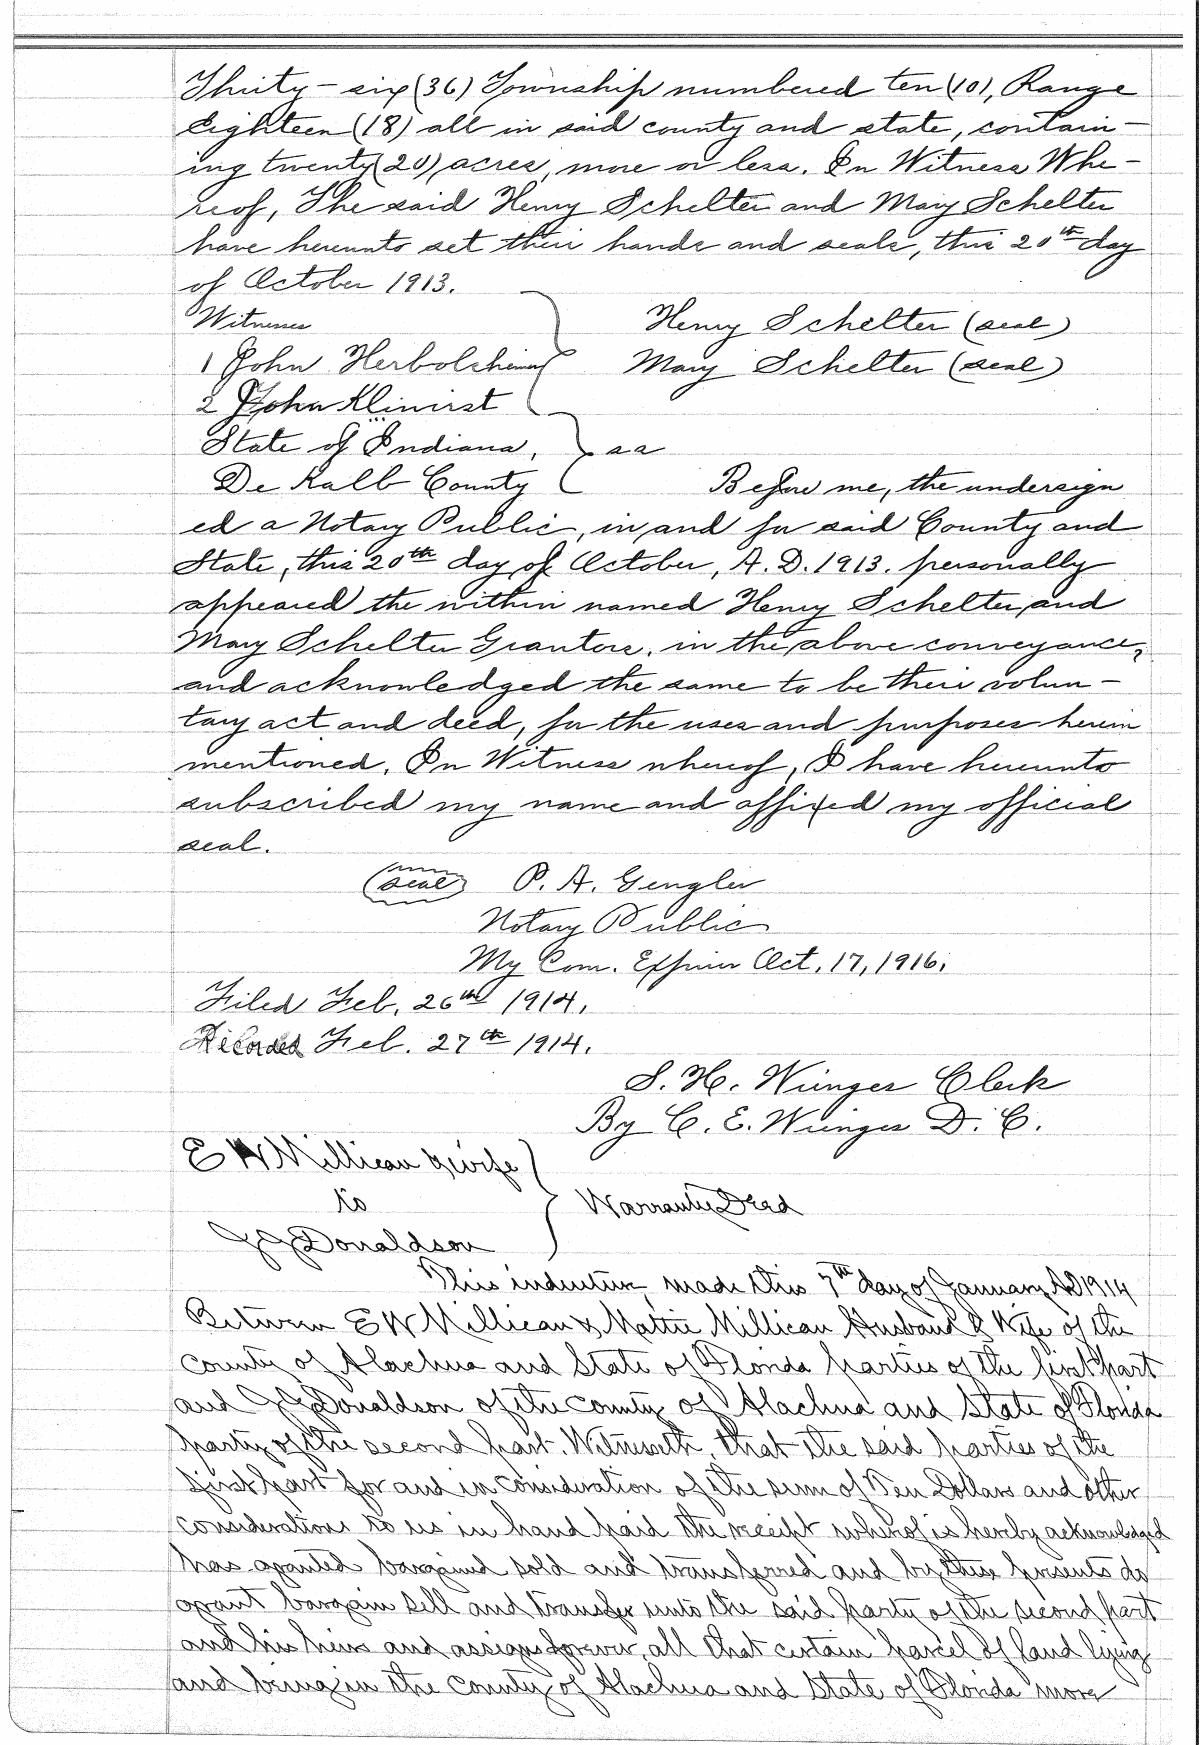 Thirty-six (36) Township numbered ten (10), Range
Eighteen (18) all in said county and state, contain-
ing twenty (20) acres, more or less. In Witness Whe-
reof, The said Henry Schelter and Mary Schelter
have hereunto set their hands and seals, this 20th day
of October 1913.
Witnesses
Henry Schelter (seal)
1 John Herbolsheimer
Mary Schelter (seal)
2 John Klinirst
State of Indiana, } ss
De Kalb County
Before me, the undersign
ed a Notary Public, in and for said County and
State, this 20th day of October, A.D. 1913. personally
appeared the within named Henry Schelter and
Mary Schelter Grantors, in the above conveyance,
and acknowledged the same to be their volun-
tary act and deed, for the uses and purposes herein
mentioned. In Witness whereof, I have hereunto
subscribed my name and affixed my official
seal.
(seal) P. A. Gengler
Notary Public
My Com. Expires Oct. 17, 1916.
Filed Feb. 26th 1914.
Recorded Feb. 27th 1914.
S. H. Wienges Clerk
By C. E. Wienges D. C.
E W Millican & wife
to } Warranty Deed
J J Donaldson
This indenture, made this 7th day of January AD 1914
Between E W Millican & Mattie Millican Husband & Wife of the
County of Alachua and State of Florida parties of the first part
and J J Donaldson of the county of Alachua and State of Florida
party of the second part. Witnesseth, that the said parties of the
first part for and in consideration of the sum of Ten Dollars and other
considerations to us in hand paid the receipt whereof is hereby acknowledged
has granted bargained sold and transferred and by these presents do
grant bargain sell and transfer unto the said party of the second part
and his heirs and assigns forever, all that certain parcel of land lying
and being in the County of Alachua and State of Florida more